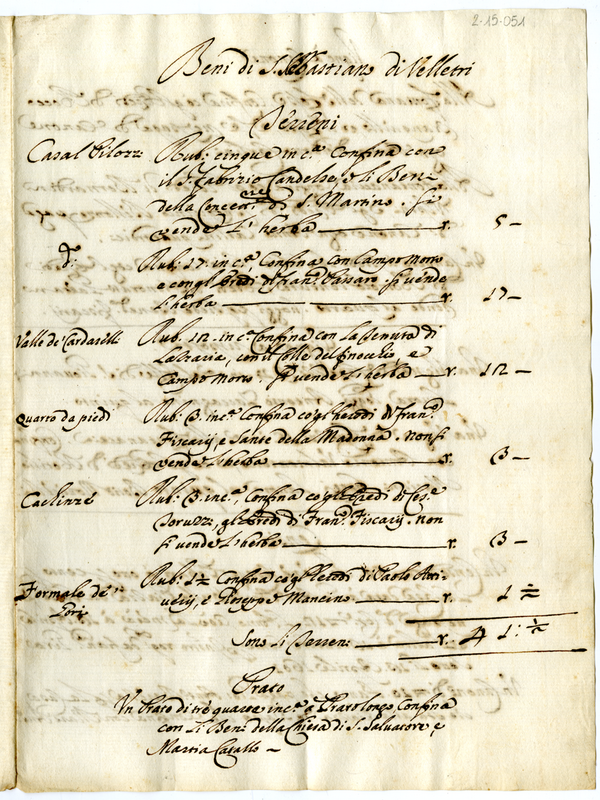 2-15-051
Beni di S. Sebastiano di Velletri
Terreni
Casal Pilozzi Rub: cinque in c.a Confina con
il S. Fabrizio Candelse, e li Beni
della Concett.ne di S. Martino. Si
vende L'herba r. 5 —
d.o Rub. 17. in c.a, Confina con Campo Morto
e con gl'heredi di fran.o Passaro. si vende
L'herba r. 17 —
Valle de' Cardarelli Rub. 12. in c.a Confina con La Tenuta di
, con il Colle del finocchio, e
Campo Morto. Si vende L'herba r. 12 —
Quarto da piedi Rub: 3. in c.a Confina co gl'heredi di fran.o
Fiscarij, e Sante della Madonna. non si
vende L'herba r. 3 —
Rub: 3. in c.a, Confina co gl'heredi di Ces.e
, gl'heredi di Fran.o Fiscarij. non
si vende L'herba r. 3 —
Formale de' Rub: 1 1/2 Confina co gl'heredi di Paolo
, e Gioseppe Mancino r. 1 1/2
Sono Li Terreni r. 41: 1/2
Prato
Un Prato di tre quarte in c.a a Pratolongo, Confina
con Li Beni della Chiesa di S. Salvatore, e
Martia Casallo —